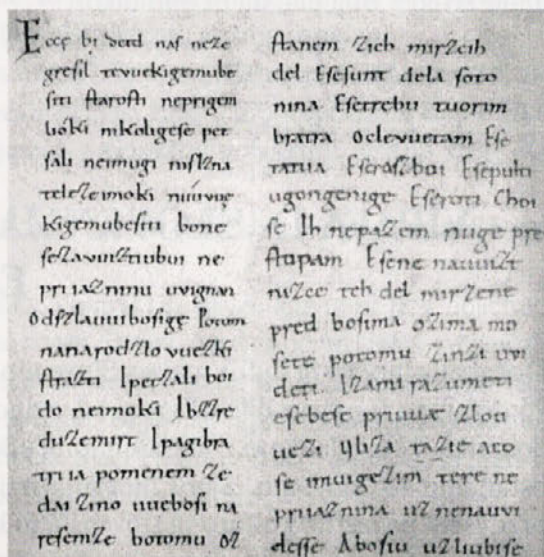 Ecce bi detd naſ neze
greſil tevuekigemube
ſiti ſtaroſti neprigem
lióki nikoligeſe pet
ſali neimugi niſlzna
teleſe imoki nuúvue
kigemubeſiti bone
ſezavuiztiubui ne
priiazninu uvignan
Odſzlauuiboſige Potom
nanarodzlovuezki
ſtrazti Ipetzali boi
do neimoki Ibzzre
duzemirt Ipagibra
triia pomenem ze
dai zino uueboſi na
reſemze botomu oz
ſtanem zich mirzcih
del Eſeſunt dela ſoto
nina Eſetrebu tuorim
bratra Oclevuetam Eſe
tatua Eſerazboi Eſepulti
ugongenige Eſeroti Choi
ſe Ih nepazem nuge pre
ſtopam Eſene nauuizt
nizce teh del mirzene
pred boſima ozima mo
ſete potomu zinzi uvi
deti Izami razumeti
eſebeſe priuuæ zlou
uezi Uliza tazie aco
ſe imuigezim tere ne
priiaznina uznenauvi
deſſe Aboſiu uzliubiſe